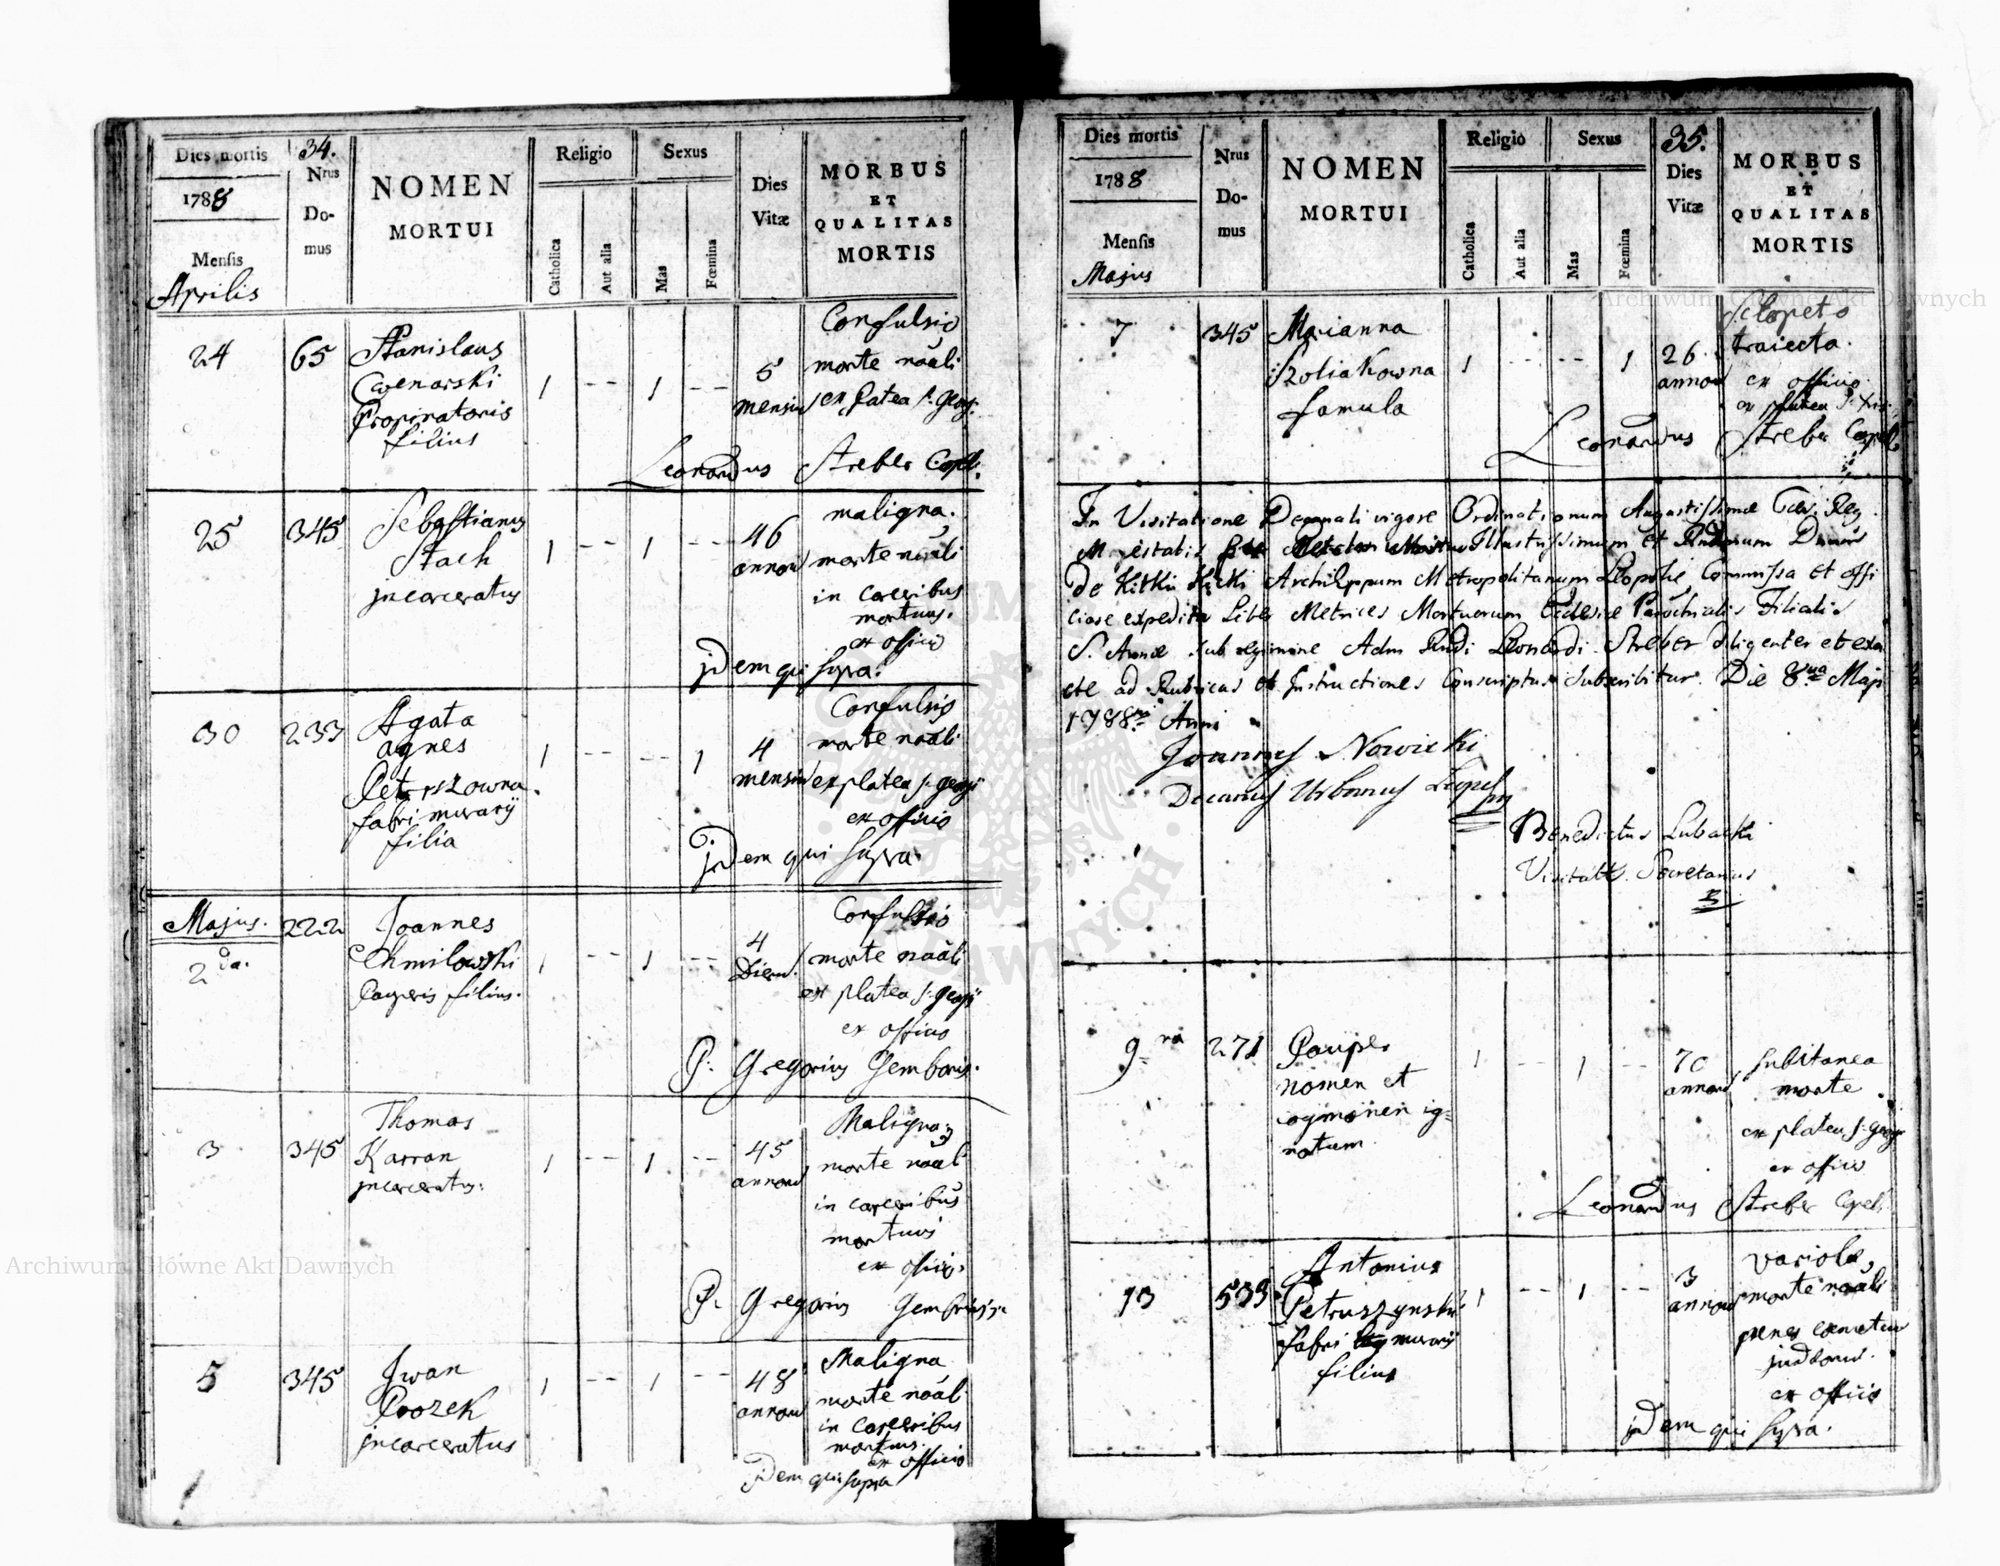 34.
Dies mortis
1788
Mensis
Aprilis
Nrus
Do-
mus
NOMEN
MORTUI
Religio
Catholica
Aut alia
Sexus
Mas
Fœmina
Dies
Vitæ
MORBUS
ET
QUALITAS
MORTIS
24
65
Stanislaus
Propinatoris
filius
1
-- 
1
--
5
mensiu
Confulsio
morte nāāli
ex Platea S. Georg:
Leonardus Streber Capel:
25
345
Sebastianus
Stach
jncarceratus
1
--
1
--
46
annoru
maligna.
morte nāāli
in carceribus
mortuus.
ex officio
jdem qui supra.
30
233
Agata
agnes
fabri murarij
filia
1
--
--
1
4
mensiu
Confulsio
morte nāāli
ex platea S. Georgij
ex officio
jdem qui supra.
Majus.
2da.
222
Joannes
Chmilowski
filius.
1
--
1
--
4
Dieru.
Confulsio
morte nāāli
ex platea S. Georgij
ex officio
P. Gregorius
3
345
Thomas
Karran
jncarceratus.
1
--
1
--
45
annoru
Maligna
morte nāāli
in carceribus
mortuus
ex officio.
P. Gregorius
5
345
Jwan
Prozek
jncarceratus
1
--
1
--
48
annoru
Maligna
morte nāāli
in carceribus
mortuus.
ex officio
jdem qui supra
35.
Dies mortis
1788
Mensis
Majus
Nrus
Do-
mus
NOMEN
MORTUI
Religio
Catholica
Aut alia
Sexus
Mas
Fœmina
Dies
Vitæ
MORBUS
ET
QUALITAS
MORTIS
7
345
Marianna
famula
1
--
--
1
26
annoru
Sclopeto
traiecta.
ex officio
ex platea S.
Leonardus Streber Capel:
In Visitatione Decanali vigore Ordinationum Augustissimæ Cæs. Reg.
Majestatis Illustrissimum et Rndssimum Dnum
De Kitki Kicki Archieppum Metropolitanum Leopolie Commissa et offi
ciose expedita Liber Metrices Mortuorum Ecclesiæ Parochialis Filialis
S. Annæ sub regimine Adm Rndi Leonardi Streber diligenter et exa
cte ad Rubricas et Instructiones Conscriptus subscribitur. Die 8va Maji
1788vi Anni
Joannes Nowicki
Decanus Urbanus Leopol
Benedictus Lubacki
Visitatt. Secretarius
9na
271
Pauper
nomen et
cognomen ig-
notum
1
1
--
70
annoru
subitanea
morte
ex platea S. Georgij
ex officio
Leonardus Streber Capel:
13
539
Antonius
Petruszynski
fabri murarij
filius
1
--
1
--
3
annoru
variola,
morte nāāli
penes
ex officio
jdem qui supra.
Archiwum Główne Akt Dawnych
Archiwum Główne Akt Dawnych
DAWNYCH